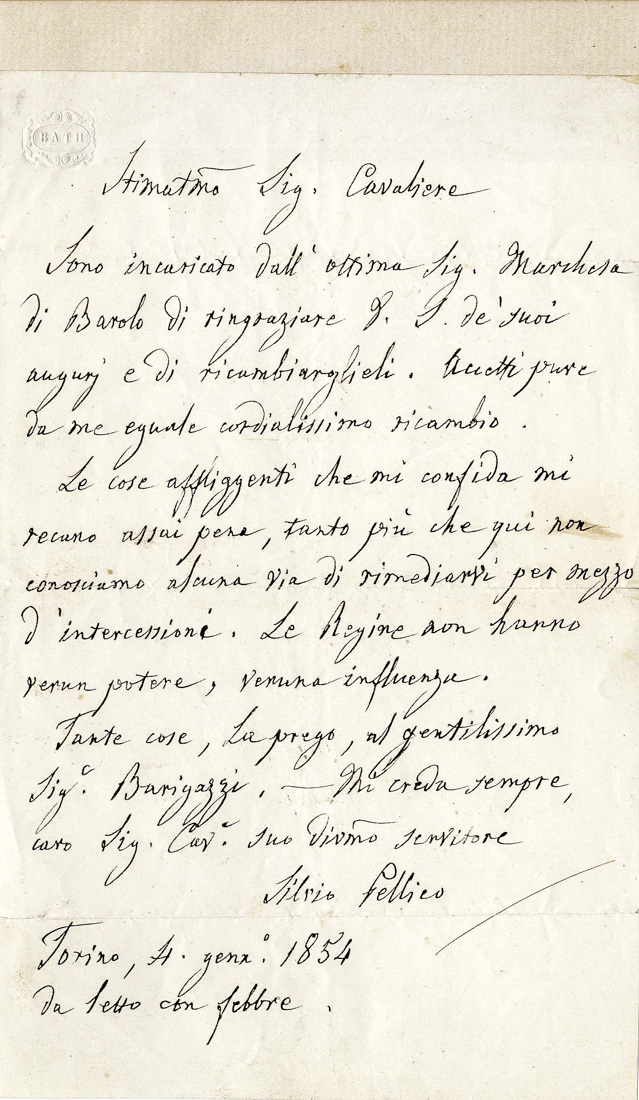 BATH
Stimatm̃o Sig. Cavaliere
Sono incaricato dall' ottima Sig. Marchesa
di Barolo di ringraziare V. S. de' suoi
augurj e di ricambiarglieli. Accetti pure
da me eguale cordialissimo ricambio.
Le cose affliggenti che mi confida mi
recano assai pena, tanto più che qui non
conosciamo alcuna via di rimediarvi per mezzo
d'intercessioni. Le Regine non hanno
verun potere, veruna influenza.
Tante cose, La prego, al gentilissimo
Sig.ʳ Barigazzi. — Mi creda sempre,
caro Sig. Cav.ʳ suo divm̃o servitore
Silvio Pellico
Torino, 4. genn.º 1854
da letto con febbre.